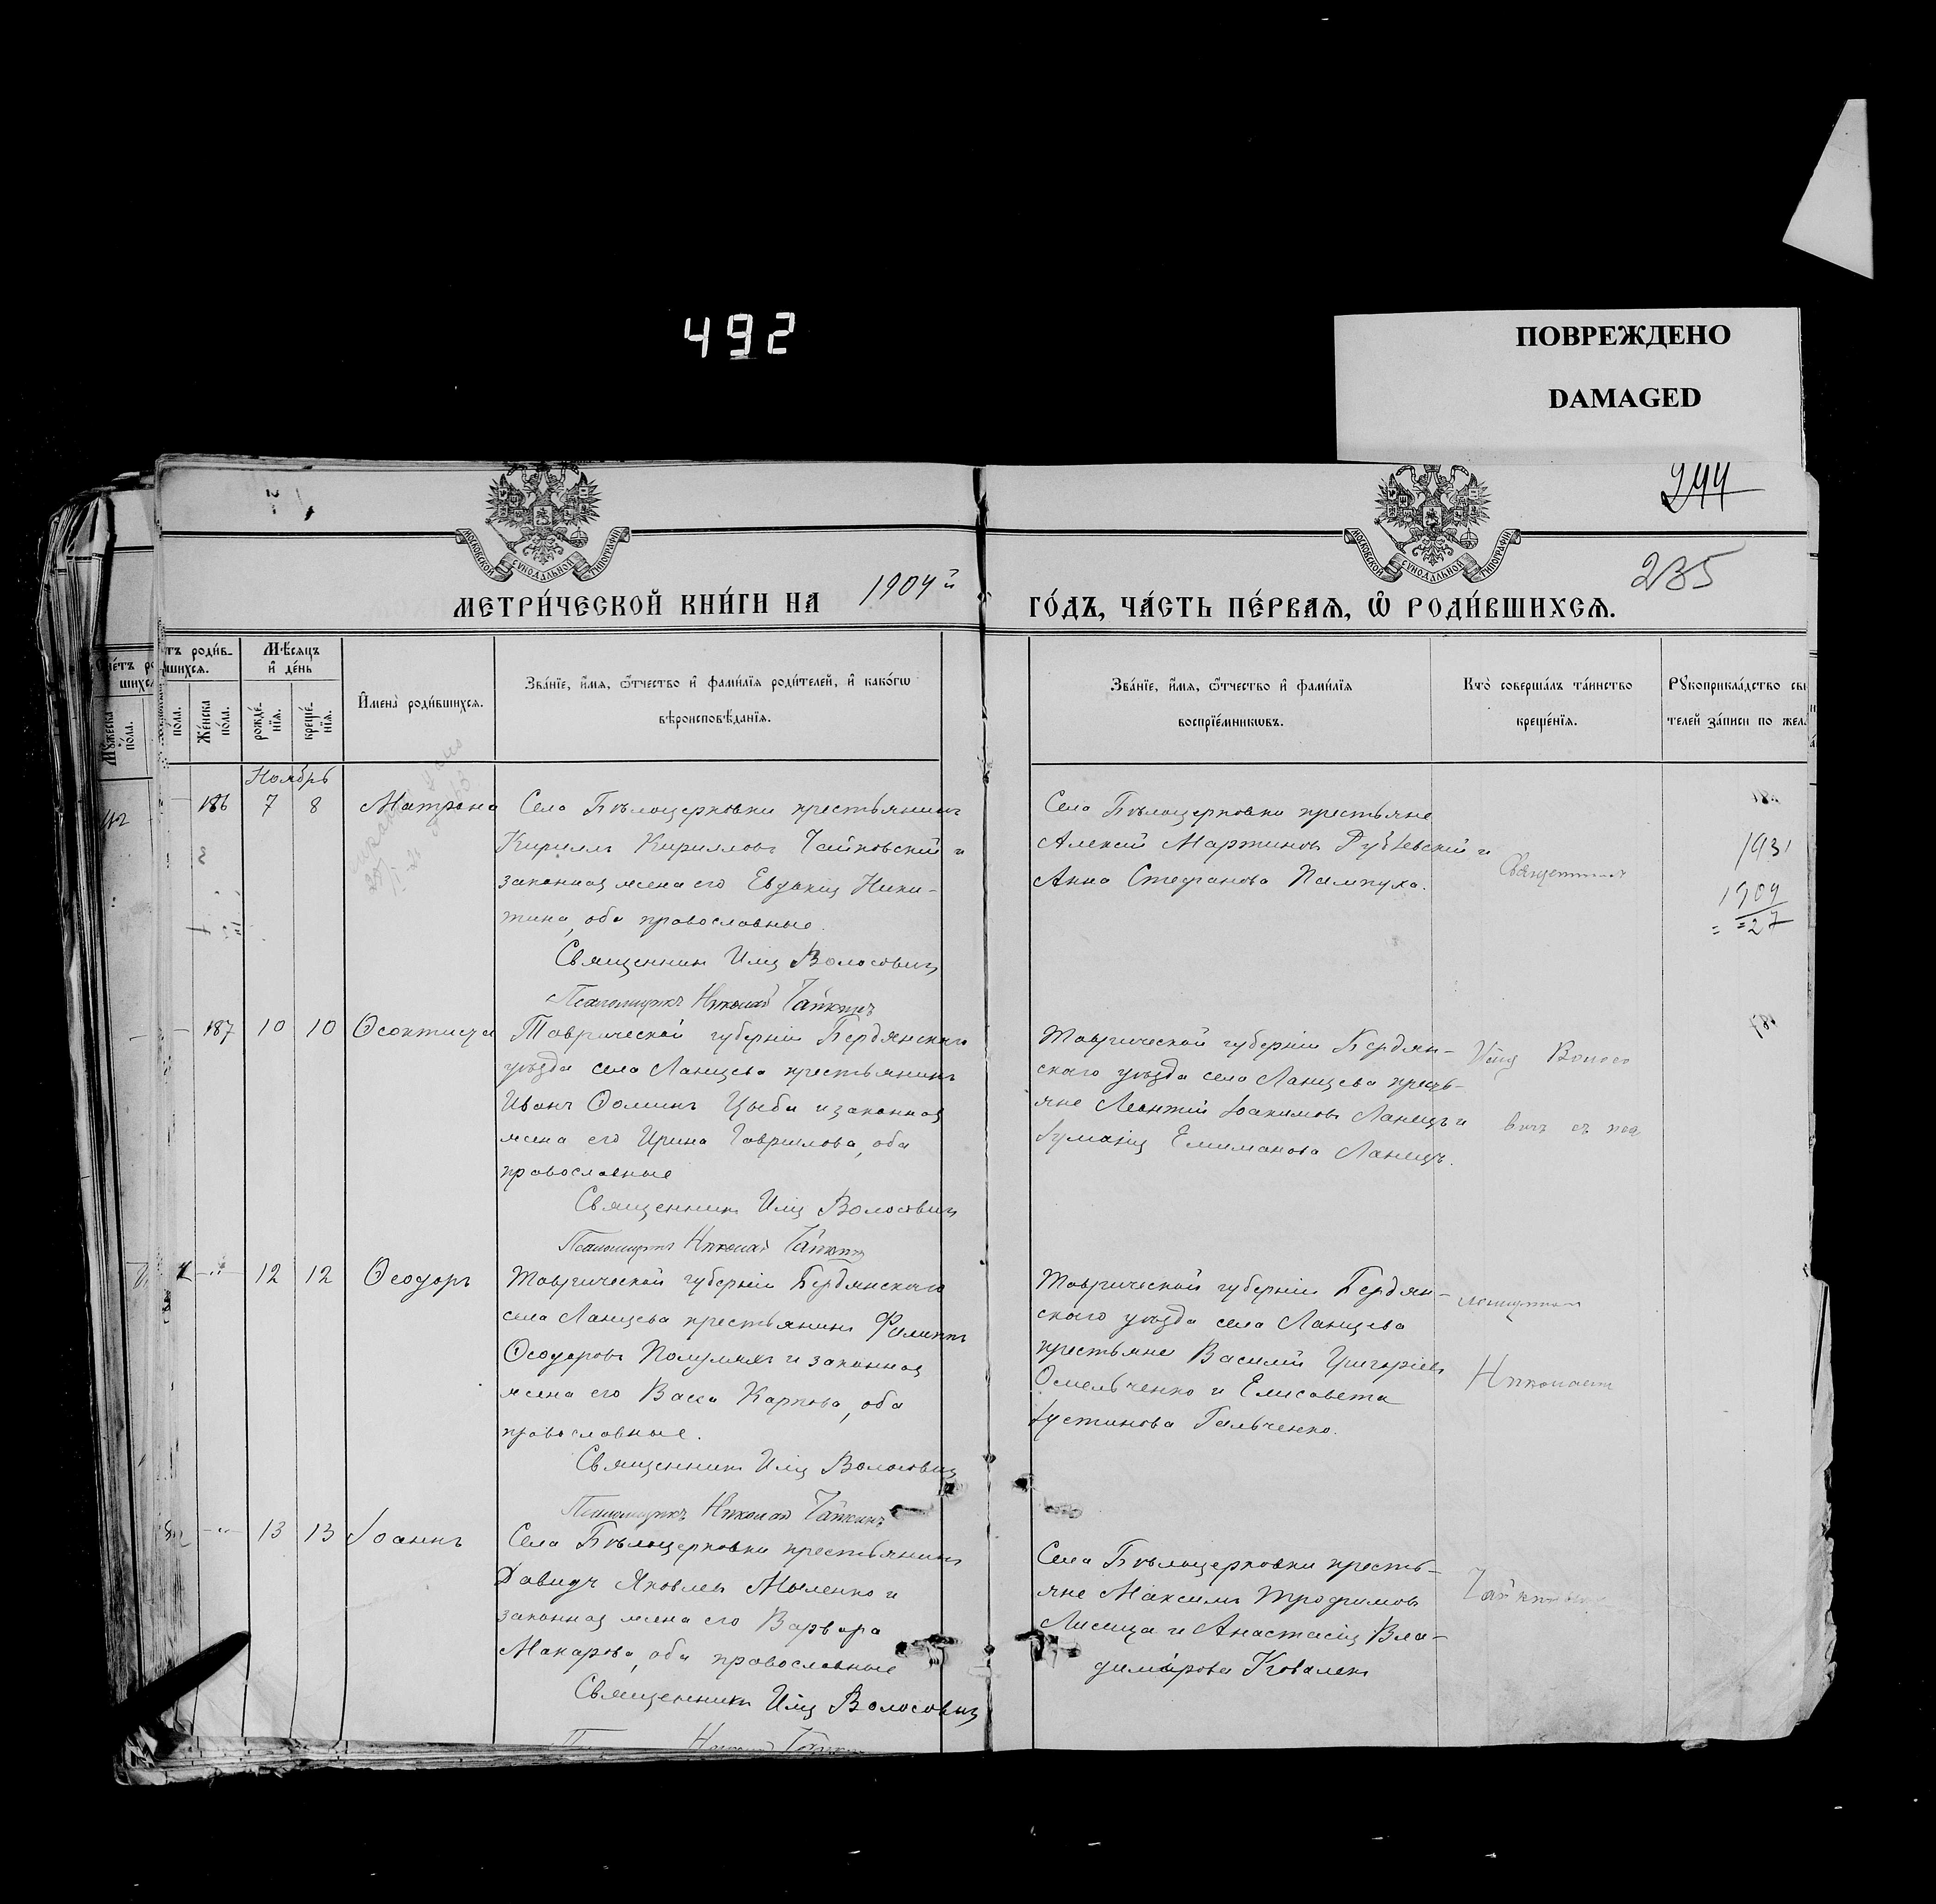 492
ПОВРЕЖДЕНО
DAMAGED
244
235
МОСКОВСКОЙ СѴНОДАЛЬНОЙ ТИПОГРАФІИ
МОСКОВСКОЙ СѴНОДАЛЬНОЙ ТИПОГРАФІИ
МЕТРИ́ЧЕСКОЙ КНИ́ГИ НА 1904й ГО́ДЪ, ЧА́СТЬ ПЕ́РВАѦ, Ѡ҆ РОДИ́ВШИХСѦ.
Мѣ́сѧцъ и҆ де́нь
Же́нска по́ла.
рожде́нїѧ.
креще́нїѧ.
И҆мена̀ роди́вшихсѧ.
Зва́нїе, и҆́мѧ, ѻ҆́тчество и҆ фами́лїѧ роди́телей, и҆ како́гѡ
вѣроисповѣ́данїѧ.
Зва́нїе, и҆́мѧ, ѻ҆́тчество и҆ фами́лїѧ
воспрїе́мникѡвъ.
Кто̀ соверша́лъ та́инство
креще́нїѧ.
Рꙋкоприкла́дство сви
телей за́писи по жел
Ноябрь
186 7 8 Матрона
Село Бѣлоцерковки крестьянинъ
Кириллъ Кирилловъ Чайковскій и
законная жена его Евдокія Ники-
тина, оба православные.
Священникъ Илія Волосовичъ
Псаломщикъ Николай
Села Бѣлоцерковки крестьяне
Алексій Мартиновъ и
Анна Стефанова Пампуха.
Священник
1931
1904
=27
187 10 10 Ѳеоктиста
Таврической губерніи Бердянскаго
уѣзда села Ланцева крестьянинъ
Иванъ Ѳоминъ Цыба и законная
жена его Ирина Гаврилова, оба
православные
Священникъ Илія Волосовичъ
Псаломщикъ Николай
Таврической губерніи Бердян-
скаго уѣзда села Ланцева кресть-
яне Леонтій Іоакимовъ Ланецъ и
Ланецъ.
Илія Волосо
вичъ съ пса
12 12 Ѳеодоръ
Таврической губерніи Бердянскаго
села Ланцева крестьянинъ Филиппъ
Ѳеодоровъ и законная
жена его Васса Карпова, оба
православные.
Священникъ Илія Волосовичъ
Псаломщикъ Николай
Таврической губерніи Бердян-
скаго уѣзда села Ланцева
крестьяне Василій Григоріевъ
Омельченко и Елисавета
Іустинова Гальченко.
ломщиком
Николаем
13 13 Іоаннъ
Села Бѣлоцерковки крестьянинъ
Давидъ Яковлевъ и
законная жена его Варвара
Макарова, оба православные
Священникъ Илія Волосовичъ
Села Бѣлоцерковки кресть-
яне Максимъ Трофимовъ
Лисица и Анастасія Вла-
димірова Коваленко